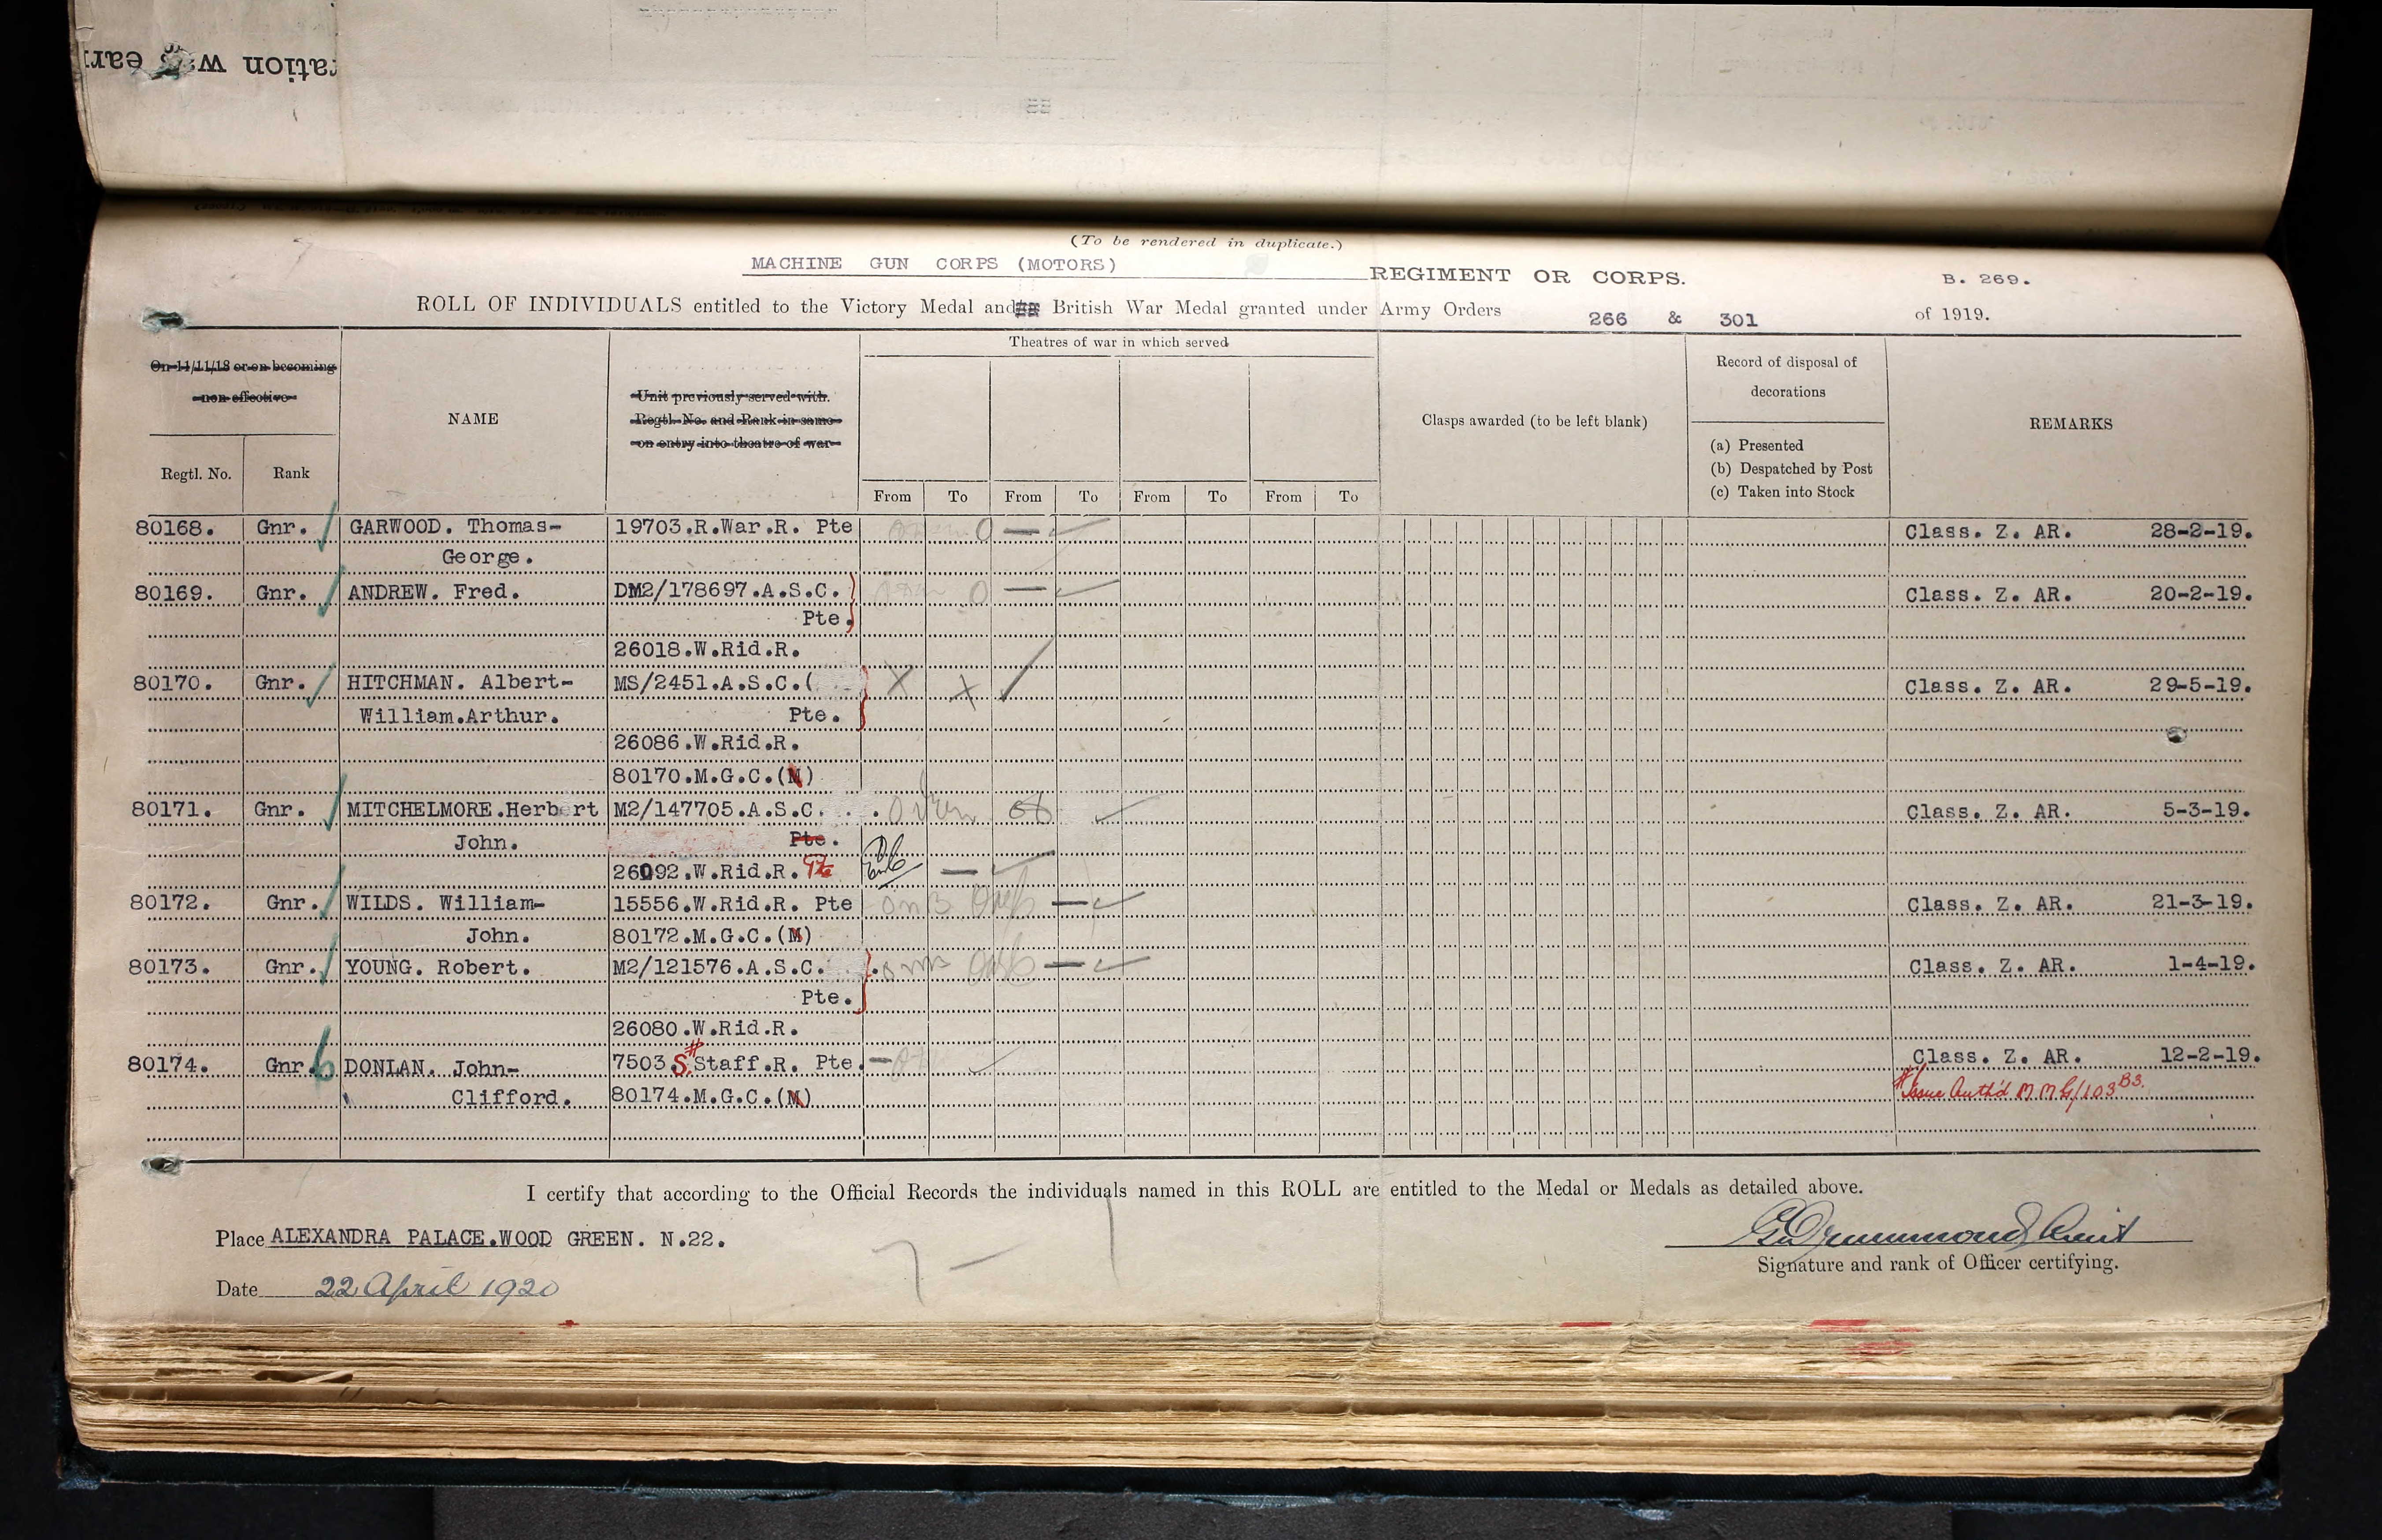 (To be rendered in duplicate.)
MACHINE GUN CORPS (MOTORS) REGIMENT OR CORPS. B. 269.
ROLL OF INDIVIDUALS entitled to the Victory Medal and British War Medal granted under Army Orders 266 & 301 of 1919.
On 11/11/18 or on becoming
non-effective
Regtl. No. Rank
NAME
Unit previously served with.
Regtl. No. and Rank in same
on entry into theatre of war
Theatres of war in which served
From To From To From To From To
Clasps awarded (to be left blank)
Record of disposal of
decorations
(a) Presented
(b) Despatched by Post
(c) Taken into Stock
REMARKS
80168. Gnr. GARWOOD. Thomas- 19703.R.War.R. Pte Class. Z. AR. 28-2-19.
George.
80169. Gnr. ANDREW. Fred. DM2/178697.A.S.C. Class. Z. AR. 20-2-19.
Pte.
26018.W.Rid.R.
80170. Gnr. HITCHMAN. Albert- MS/2451.A.S.C.( Class. Z. AR. 29-5-19.
William.Arthur. Pte.
26086.W.Rid.R.
80170.M.G.C.(M)
80171. Gnr. MITCHELMORE.Herbert M2/147705.A.S.C. Class. Z. AR. 5-3-19.
John. Pte.
26092.W.Rid.R. Pte
80172. Gnr. WILDS. William- 15556.W.Rid.R. Pte Class. Z. AR. 21-3-19.
John. 80172.M.G.C.(M)
80173. Gnr. YOUNG. Robert. M2/121576.A.S.C. Class. Z. AR. 1-4-19.
Pte.
26080.W.Rid.R.
80174. Gnr. DONLAN. John- 7503.S.Staff.R. Pte. Class. Z. AR. 12-2-19.
Clifford. 80174.M.G.C.(M) # Issue Auth'd M M G/103 B3.
I certify that according to the Official Records the individuals named in this ROLL are entitled to the Medal or Medals as detailed above.
Place ALEXANDRA PALACE.WOOD GREEN. N.22.
Signature and rank of Officer certifying.
Date 22 April 1920